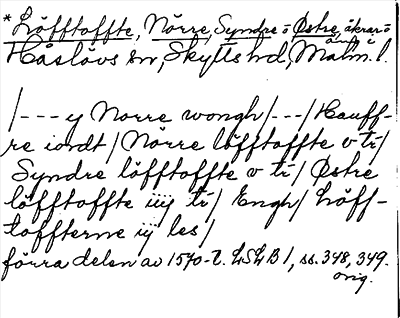 *Löfftoffte, Nörre, Syndre o Østre, åkrar o
äng i
Håslövs sn, Skytts hd, Malm. l.
/--- y Norre wongh/---/Hauff-
re iordt/ Nörre löfftoffte v tr̄/
Syndre löfftoffte v tr̄/ Østre
löfftoffte iiij tr̄/ Engh/ Löff-
toffterne ij les/
förra delen av 1570-t. LSLB 1, ss. 348, 349.
orig.